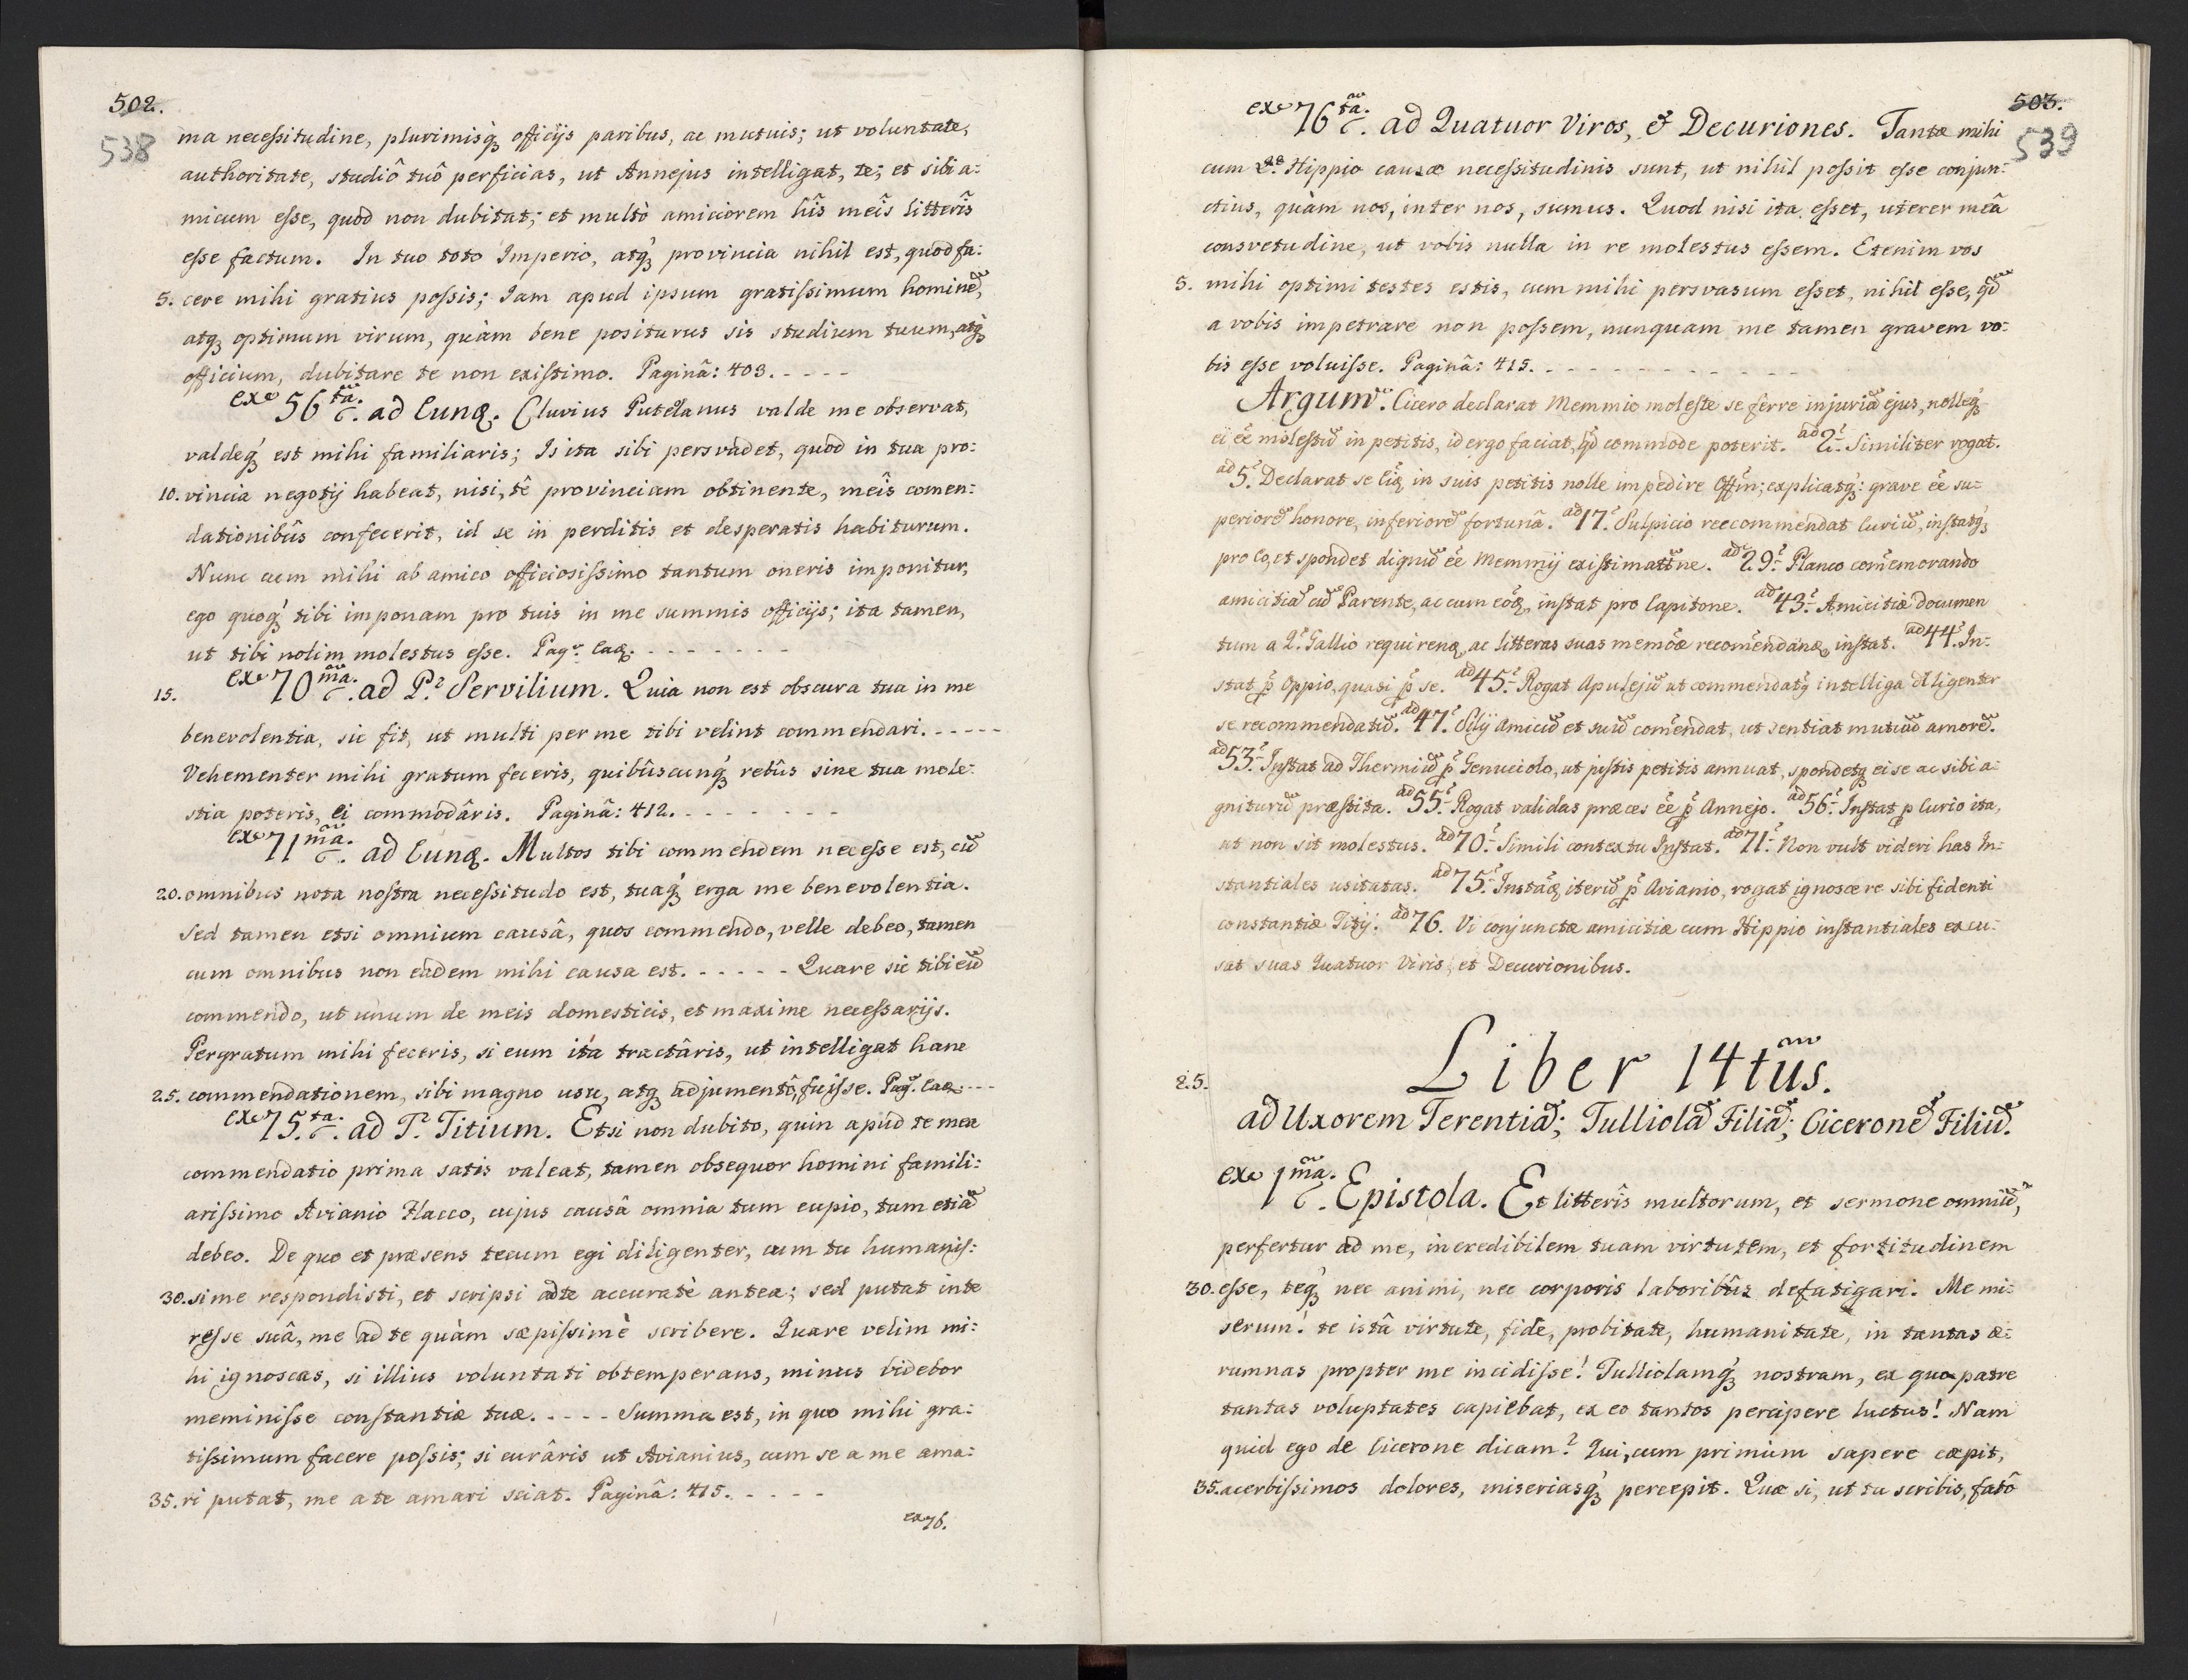 502.
538
ma necessitudine, plurimisq́ officijs paribus, ac mutuis; ut voluntate,
authoritate, studiô tuô perficias, ut Annejus intelligat, te; et sibi a:
micum esse, quod non dubitat; et multò amiciorem hîs meîs litterîs
esse factum. In tuo toto Imperio, atq́ provincia nihil est, quod fa:
5. cere mihi gratius possis; Jam apud ipsum gratissimum hominẽ,
atq́ optimum virum, quàm bene positurus sis studium tuum, atq́
officium, dubitare te non existimo. Paginâ: 403. - - - -
ex 56ta. ad Eunq. Cluvius Puteolanus valde me observat,
valdeq́ est mihi familiaris; Is ita sibi persvadet, quod in tua pro:
10. vincia negotij habeat, nisi, tê provinciam obtinente, meîs com̃en:
dationibûs confecerit, id se in perditis et desperatis habiturum.
Nunc cum mihi ab amico officiosissimo tantum oneris imponitur,
ego quoq́ tibi imponam pro tuis in me summis officijs; ita tamen,
ut tibi nolim molestus esse. Pag. Eaq. - - - - - - -
15. ex 70ma. ad P. Servilium. Quia non est obscura tua in me
benevolentia, sic fit, ut multi per me tibi velint commendari. - - - - -
Vehementer mihi gratum feceris, quibûscunq́ rebûs sine tua mole:
stia poteris, ei commodâris. Paginâ: 412. - - - - - - -
ex 71ma. ad Eunq. Multos tibi commendem necesse est, cũ
20. omnibus nota nostra necessitudo est, tuaq́ erga me benevolentia.
Sed tamen etsi omnium causâ, quos commendo, velle debeo, tamen
cum omnibus non eadem mihi causa est. - - - - - Quare sic tibi eũ
commendo, ut unum de meis domesticis, et maxime necessarijs.
Pergratum mihi feceris, si eum ita tractâris, ut intelligat hanc
25. commendationem, sibi magno usu, atq́ adjumentô, fuisse. Pag. Eaq. - - -
ex 75.ta. ad T. Titium. Etsi non dubito, quin apud te mea
commendatio prima satis valeat, tamen obsequor homini famili:
arissimo Avianio Flacco, cujus causâ omnia tum cupio, tum etiã
debeo. De quo et præsens tecum egi diligenter, cum tu humanis:
30. sime respondisti, et scripsi ad te accuratè antea; sed putat inte
resse suâ, me ad te quàm sæpissimè scribere. Quare velim mi:
hi ignoscas, si illius voluntati obtemperans, minus videbor
meminisse constantiæ tuæ. - - - - Summa est, in quo mihi gra:
tissimum facere possis; si curâris ut Avianius, cum se a me ama:
35. ri putat, me a te amari sciat. Paginâ: 415. - - - -
ex 76.
503.
539
ex 76ta. ad Quatuor Viros, & Decuriones. Tantæ mihi
cum Hippio causæ necessitudinis sunt, ut nihil possit esse conjun:
ctius, quàm nos, inter nos, sumus. Quod nisi ita esset, uterer meâ
consvetudine, ut vobis nulla in re molestus essem. Etenim vos
5. mihi optimi testes estis, cum mihi persvasum esset, nihil esse, qd̃
a vobis impetrare non possem, nunquam me tamen gravem vo:
bis esse voluisse. Paginâ: 415. - - - - - - - - - - -
Argum. Cicero declarat Memmio moleste se ferre injuriã ejus, nolleq́
ei eẽ molestũ in petitis, id ergo faciat, qd̃ commode poterit. ad 2. Similiter rogat.
ad 5. Declarat se in suis petitis nolle impedire Offm; explicatq́: grave eẽ su:
periorẽ honore, inferiorẽ fortunâ. ad 17. Sulpicio recommendat Curiũ, instatq́
pro Eo, et spondet dignũ eẽ Memmij existimatne. ad 29. Planco com̃emorando
amicitiã cũ Parente, ac cum eodẽ, instat pro Capitone. ad 43. Amicitiæ documen
tum a Q. Gallio requirenq, ac litteras suas memõæ recom̃endanq, instat. ad 44. In:
stat p̃ Oppio, quasi p̃ se. ad 45. Rogat Apulejũ ut commendatq́ intelliga diligenter
se recommendatũ. ad 47. Silij Amicũ et suũ com̃endat, ut sentiat mutuũ amorẽ.
ad 53. Instat ad Thermiũ p̃ Genucilo, ut justis petitis annuat, spondetq́ ei se ac sibi a:
gniturũ præstita. ad 55. Rogat validas præces eẽ p̃ Annejo. ad 56. Instat p̃ Curio ita,
ut non sit molestus. ad 70. Simili contextu Instat. ad 71. Non vult videri has In:
stantiales usitatas. ad 75. Instãq iterũ p̃ Avianio, rogat ignoscere sibi fidenti
constantiæ Titij. ad 76. Vi conjunctæ amicitiæ cum Hippio instantiales excu:
sat suas Quatuor Viris, et Decurionibus.
25. Liber 14tũs.
ad Uxorem Terentiã; Tulliolã Filiã; Ciceronẽ Filiũ.
ex 1ma. Epistola. Et litterîs multorum, et sermone omniũ,
perfertur ad me, incredibilem tuam virtutem, et fortitudinem
30. esse, teq́ nec animi, nec corporis laboribûs defatigari. Me mi:
serum! te istâ virtute, fide, probitate, humanitate, in tantas æ:
rumnas propter me incidisse! Tulliolamq́ nostram, ex quo patre
tantas voluptates capiebat, ex eo tantos percipere luctus! Nam
quid ego de Cicerone dicam? Qui, cum primùm sapere cæpit,
35. acerbissimos dolores, miseriasq́ percepit. Quæ si, ut tu scribis, fatô